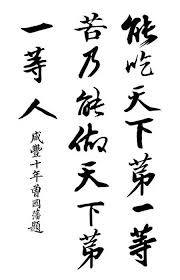 能吃天下第一等
苦乃能做天下第
一等人
咸豐十年曾國藩題